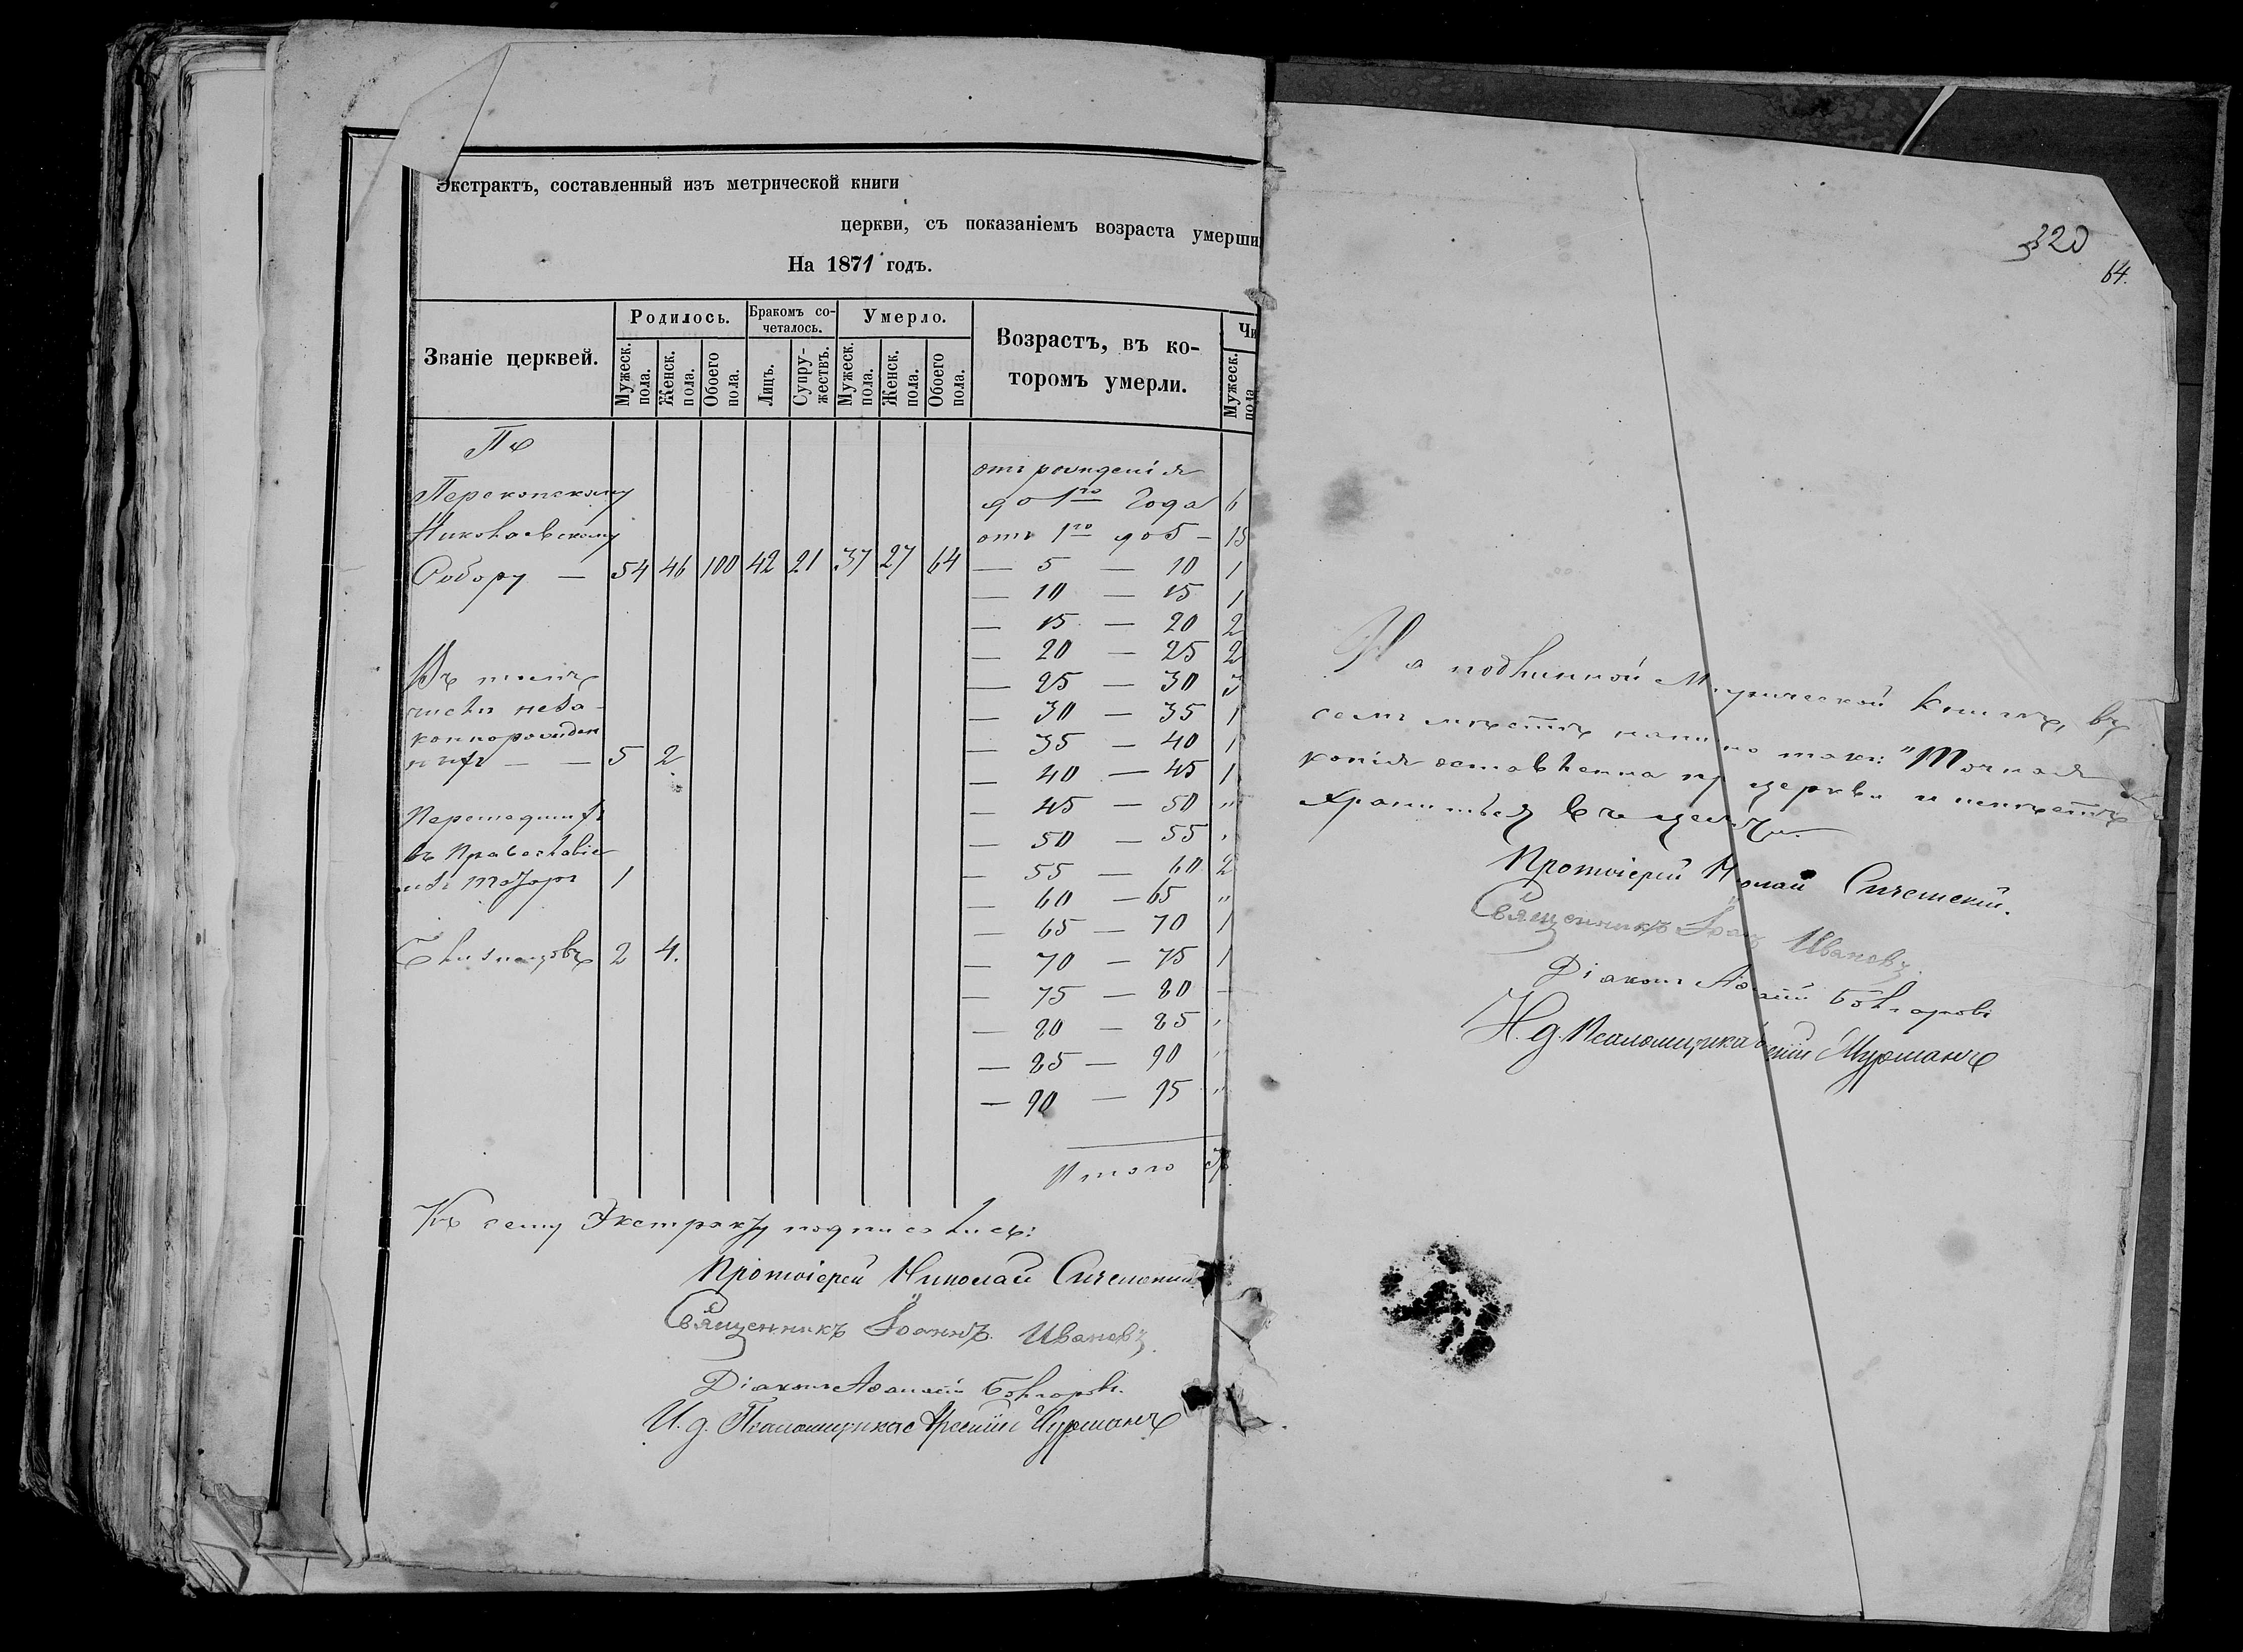 Экстрактъ, составленный изъ метрической книги
церкви, съ показаніемъ возраста умерши
На 1871 годъ.
Званіе церквей.
Родилось.
Бракомъ со-
четалось.
Умерло.
Возрастъ, въ ко-
торомъ умерли.
Чи
Мужеск. пола.
Женск. пола.
Обоего пола.
Лицъ.
Супру-
жествъ.
Мужеск. пола.
Женск. пола.
Обоего пола.
Мужеск. пола
По
Перекопскому
Николаевскому
Собору — 54 46 100 42 21 37 27 64
Въ томъ
числѣ неза-
коннорожден
ныхъ — — 5 2
Перешедшихъ
въ Православіе
изъ 1
Близнецовъ 2 4.
отъ рожденія
до 1го года 6
отъ 1го до 5 — 15
— 5 — 10 1
— 10 — 15 1
— 15 — 20 2
— 20 — 25 2
— 25 — 30 3
— 30 — 35 1
— 35 — 40 1
— 40 — 45 1
— 45 — 50 "
— 50 — 55 "
— 55 — 60 2
— 60 — 65 "
— 65 — 70 1
— 70 — 75 1
— 75 — 80 —
— 80 — 85 "
— 85 — 90 "
— 90 — 95 "
Итого 37
Къ сему Экстракту подписались:
Протоіерей Николай
Священникъ Іоаннъ Ивановъ.
Діаконъ Афанасій Болгаровъ.
И. д. Псаломщика Арсеній
320
64.
На подлинной Метрической Книгѣ, въ
семъ мѣстѣ написано такъ: "Точная
копія оставленна при церкви и
хранится въ
Протоіерей Николай
Священникъ Іоан Ивановъ.
Діаконъ Афанасій Болгаровъ
И. д. Псаломщика